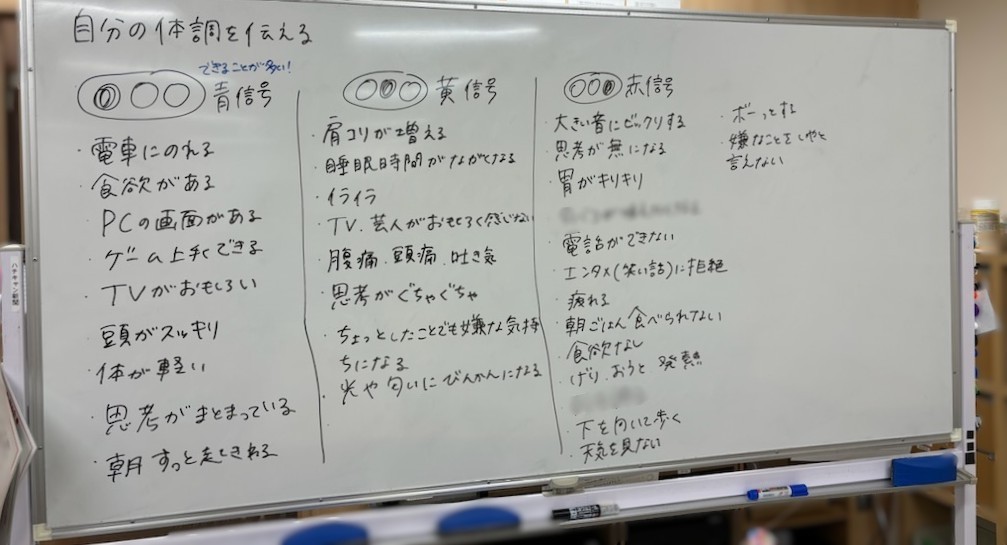 自分の体調を伝える
できることが多い!
青信号
・電車にのれる
・食欲がある
・PCの画面がある
・ゲーム上手くできる
・TVがおもしろい
・頭がスッキリ
・体が軽い
・思考がまとまっている
・朝すっと起ききれる
黄信号
・肩コリが増える
・睡眠時間がながくなる
・イライラ
・TV、芸人がおもしろく感じない
・腹痛、頭痛、吐き気
・思考がぐちゃぐちゃ
・ちょっとしたことでも嫌な気持
ちになる
・光や匂いにびんかんになる
赤信号
・大きい音にビックリする
・思考が無になる
・胃がキリキリ
・電話ができない
・エンタメ(笑い話)に拒絶
・疲れる
・朝ごはん食べられない
・食欲なし
・げり、おうと、発熱
・下を向いて歩く
・天気を見ない
・ボーっとする
・嫌なことをいやと
言えない
ハチキャン新聞